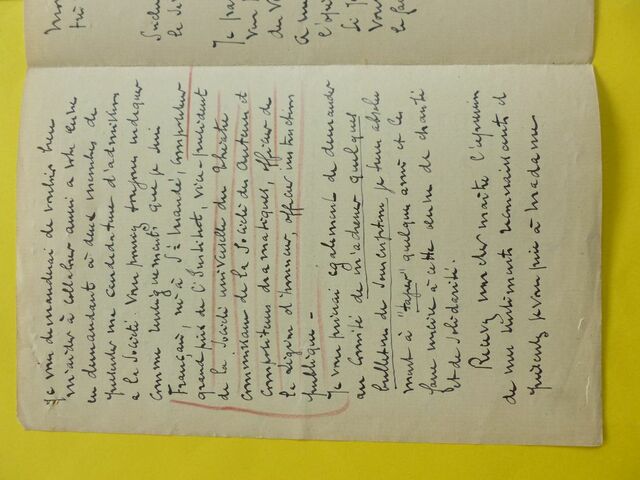 Je vous demanderai de vouloir bien
m'aider à collaborer aussi à votre œuvre
en demandant à deux membres de
présenter ma candidature d'admission
à la Société. Vous pouvez toujours indiquer
comme renseignements que je suis
Français, né à St Mandé, compositeur
grand prix de l'Institut, vice-président
de la Société universelle du Théâtre
Commissaire de la Société des Auteurs et
Compositeurs dramatiques, officier de
la légion d'honneur, officier instruction
publique -
Je vous prierai également de demander
au Comité de m'adresser quelques
bulletins de souscription, je tiens absolu
ment à "taper" quelques amis et les
faire à cette œuvre de charité
et de solidarité.
Recevez mon cher maître l'expression
de mes sentiments reconnaissants et
présentez je vous prie à madame